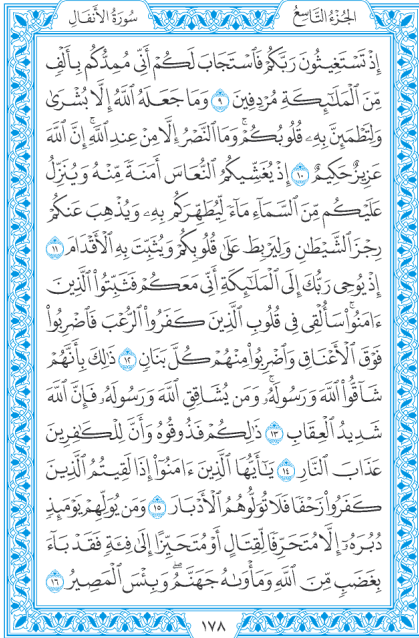 الجزء التاسع
سورة الأنفال
إِذْ تَسْتَغِيثُونَ رَبَّكُمْ فَٱسْتَجَابَ لَكُمْ أَنِّى مُمِدُّكُم بِأَلْفٍ
مِّنَ ٱلْمَلَـٰٓئِكَةِ مُرْدِفِينَ ٩ وَمَا جَعَلَهُ ٱللَّهُ إِلَّا بُشْرَىٰ
وَلِتَطْمَئِنَّ بِهِۦ قُلُوبُكُمْ ۚ وَمَا ٱلنَّصْرُ إِلَّا مِنْ عِندِ ٱللَّهِ ۚ إِنَّ ٱللَّهَ
عَزِيزٌ حَكِيمٌ ١٠ إِذْ يُغَشِّيكُمُ ٱلنُّعَاسَ أَمَنَةً مِّنْهُ وَيُنَزِّلُ
عَلَيْكُم مِّنَ ٱلسَّمَآءِ مَآءً لِّيُطَهِّرَكُم بِهِۦ وَيُذْهِبَ عَنكُمْ
رِجْزَ ٱلشَّيْطَـٰنِ وَلِيَرْبِطَ عَلَىٰ قُلُوبِكُمْ وَيُثَبِّتَ بِهِ ٱلْأَقْدَامَ ١١
إِذْ يُوحِى رَبُّكَ إِلَى ٱلْمَلَـٰٓئِكَةِ أَنِّى مَعَكُمْ فَثَبِّتُوا۟ ٱلَّذِينَ
ءَامَنُوا۟ ۚ سَأُلْقِى فِى قُلُوبِ ٱلَّذِينَ كَفَرُوا۟ ٱلرُّعْبَ فَٱضْرِبُوا۟
فَوْقَ ٱلْأَعْنَاقِ وَٱضْرِبُوا۟ مِنْهُمْ كُلَّ بَنَانٍ ١٢ ذَٰلِكَ بِأَنَّهُمْ
شَآقُّوا۟ ٱللَّهَ وَرَسُولَهُۥ ۚ وَمَن يُشَاقِقِ ٱللَّهَ وَرَسُولَهُۥ فَإِنَّ ٱللَّهَ
شَدِيدُ ٱلْعِقَابِ ١٣ ذَٰلِكُمْ فَذُوقُوهُ وَأَنَّ لِلْكَـٰفِرِينَ
عَذَابَ ٱلنَّارِ ١٤ يَـٰٓأَيُّهَا ٱلَّذِينَ ءَامَنُوٓا۟ إِذَا لَقِيتُمُ ٱلَّذِينَ
كَفَرُوا۟ زَحْفًا فَلَا تُوَلُّوهُمُ ٱلْأَدْبَارَ ١٥ وَمَن يُوَلِّهِمْ يَوْمَئِذٍ
دُبُرَهُۥٓ إِلَّا مُتَحَرِّفًا لِّقِتَالٍ أَوْ مُتَحَيِّزًا إِلَىٰ فِئَةٍ فَقَدْ بَآءَ
بِغَضَبٍ مِّنَ ٱللَّهِ وَمَأْوَىٰهُ جَهَنَّمُ ۖ وَبِئْسَ ٱلْمَصِيرُ ١٦
١٧٨